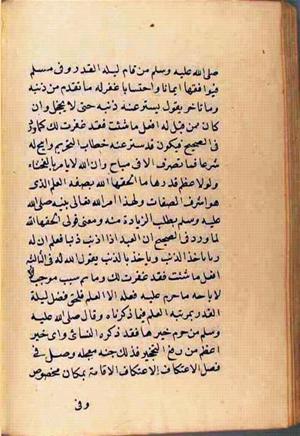 صلى الله عليه وسلم من قام ليلة القدر وفى مسلم
فيوافقها ايمانا واحتسابا غفر له ما تقدم من ذنبه
وما تاخر يقول يستر عنه ذنبه حتى لا يخجل وان
كان ممن قيل له افعل ما شئت فقد غفرت لك كما ورد
فى الصحيح فيكون قد ستر عنه خطاب التحريم وابيح له
شرعا فما تصرف الا فى مباح وان الله لا يامر بالفحشاء
ولولا عظم قدرها ما الحقها الله بصفة العلم الذى هو
اشرف الصفات ولهذا امر الله تعالى نبيه صلى الله
عليه وسلم بطلب الزيادة منه ومعنى قولى الحقها الله
لما ورد فى الصحيح ان العبد اذا اذنب ذنبا فعلم ان له
ربا ياخذ الذنب وياخذ بالذنب يقول الله له فى الثالثة
افعل ما شئت فقد غفرت لك وما ثم سبب موجب
لاباحة ما حرم عليه فعله الا العلم فلحق فضل ليلة
القدر بمرتبة العلم فما ذكرناه وقال صلى الله عليه
وسلم من حرم خيرها فقد ذكره النسائى واى خير
اعظم من رفع التحجير فذلك جنة معجلة وصل فى
فصل الاعتكاف الاعتكاف الاقامة بمكان مخصوص
وفى